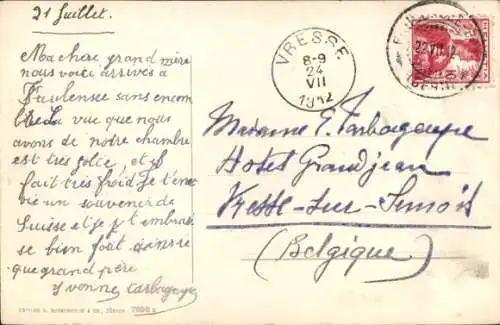 21 Juillet.
Ma chere grand mère
nous voici arrivés à
Faulensee sans encom
bre La vue que nous
avons de notre chambre
est très jolie, et il
fait très froid Je t'env
oie un souvenir de
Suisse et je t'embras
se bien fort ainsi
que grand père
Yvonne Tarbagayre
VRESSE
8-9
24
VII
1912
Madame E. Tarbagayre
Hotel Grandjean
Vresse-sur-Semois
(Belgique)
7000